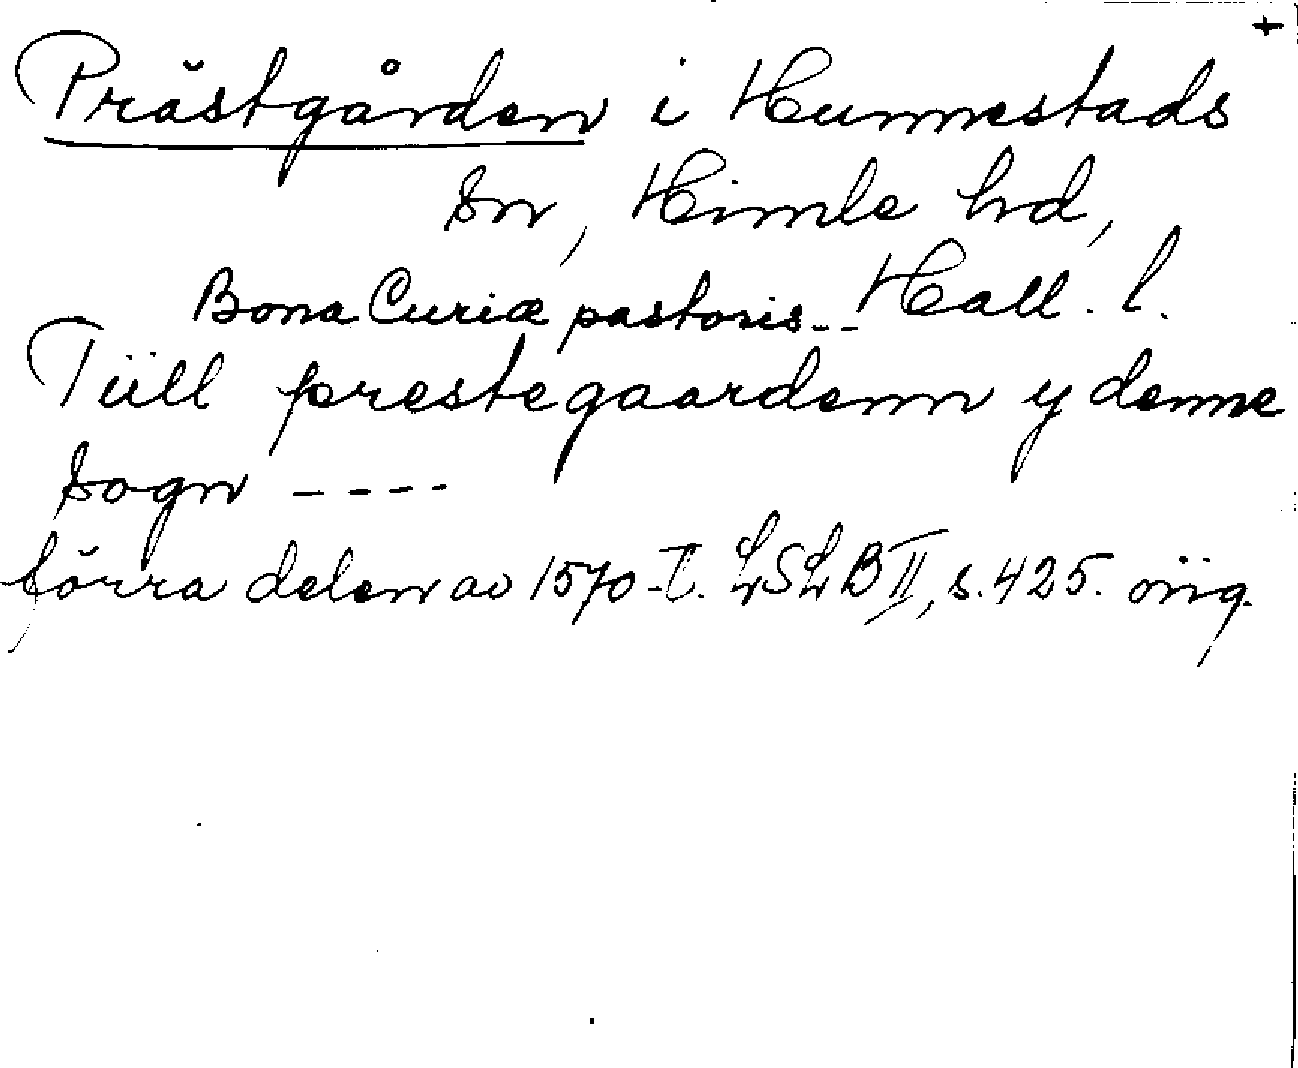 +
Prästgården i Hunnestads
sn, Himle hd,
Hall. l.
Bona Curiæ pastoris --
Tiill prestegaardenn y denne
sogn ----
förra delen av 1570-t. LSLB II, s. 425. orig.